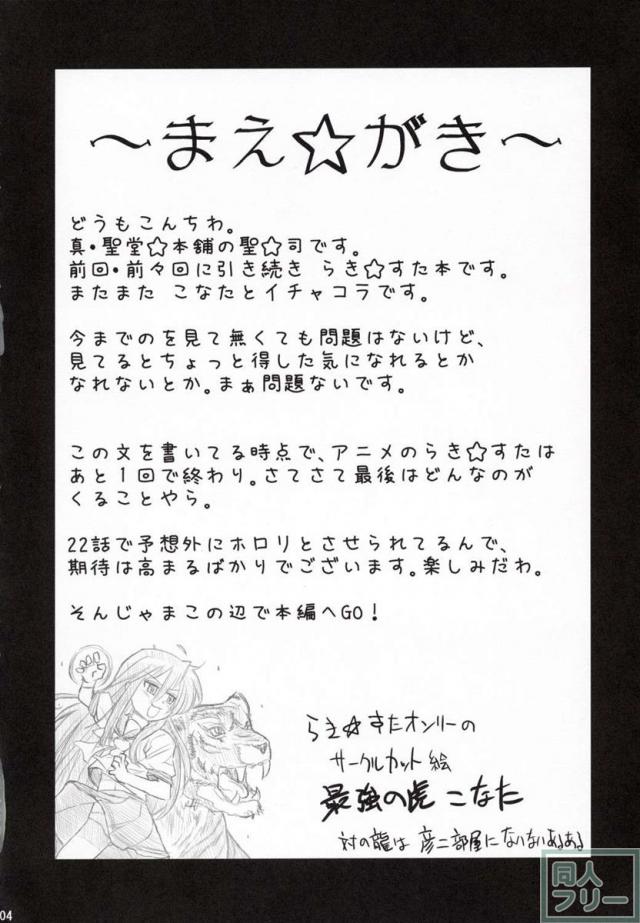 ～まえ☆がき～
どうもこんちわ。
真・聖堂☆本舗の聖☆司です。
前回・前々回に引き続き らき☆すた本です。
またまた こなたとイチャコラです。
今までのを見て無くても問題はないけど、
見てるとちょっと得した気になれるとか
なれないとか。まぁ問題ないです。
この文を書いてる時点で、アニメのらき☆すたは
あと１回で終わり。さてさて最後はどんなのが
くることやら。
22話で予想外にホロリとさせられてるんで、
期待は高まるばかりでございます。楽しみだわ。
そんじゃまこの辺で本編へGO！
らき☆すたオンリーの
サークルカット絵
最強の虎 こなた
対の龍は 彦二部屋にないないあるある
同人
フリー
04